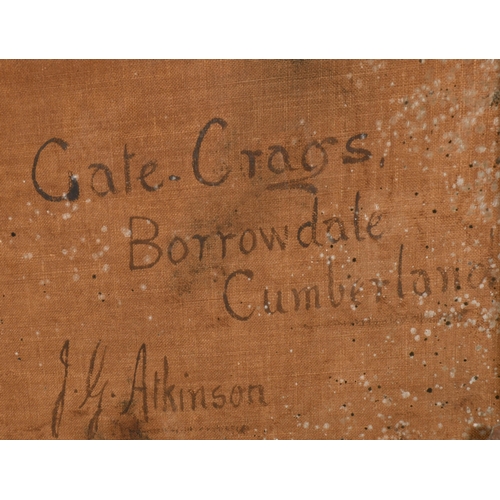 Gate. Crags,
Borrowdale
Cumberland
J. G. Atkinson